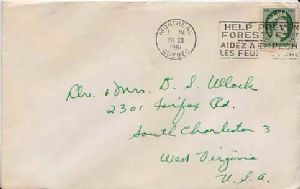 MONTREAL
1961
QUEBEC
HELP PREVENT
FOREST
AIDEZ A
LES FEUX
Mrs. D. S.
2301 Fairfax Rd.
South Charleston 3
West Virginia
U.S.A.